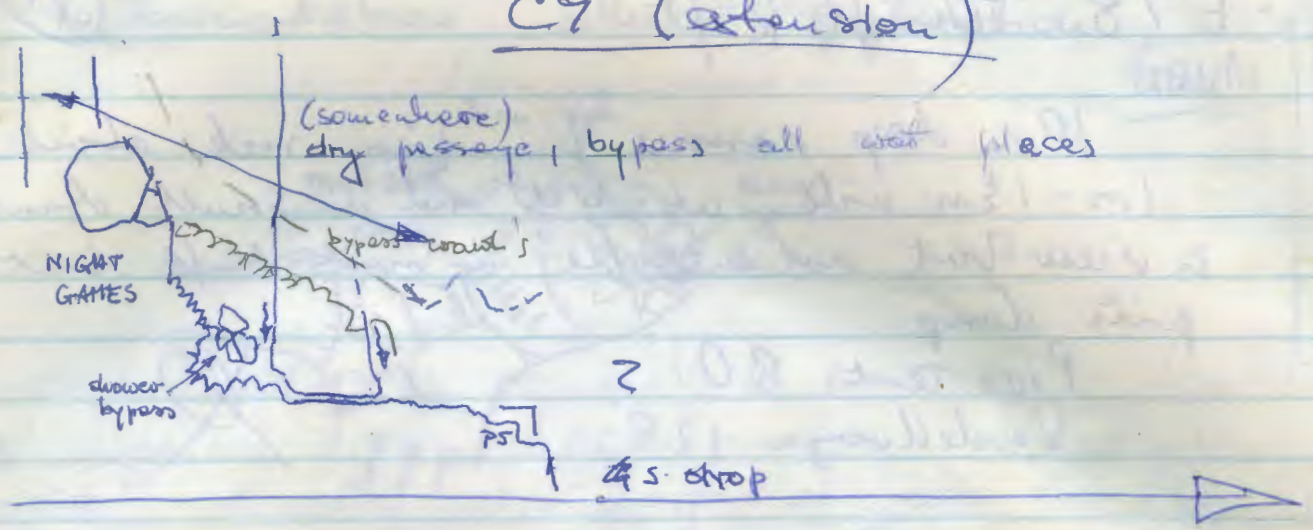 C9 (extension)
(somewhere)
dry passage, bypass all wet places
bypass crawl's
NIGHT
GAMES
shower
bypass
?
P5
4 s. drop